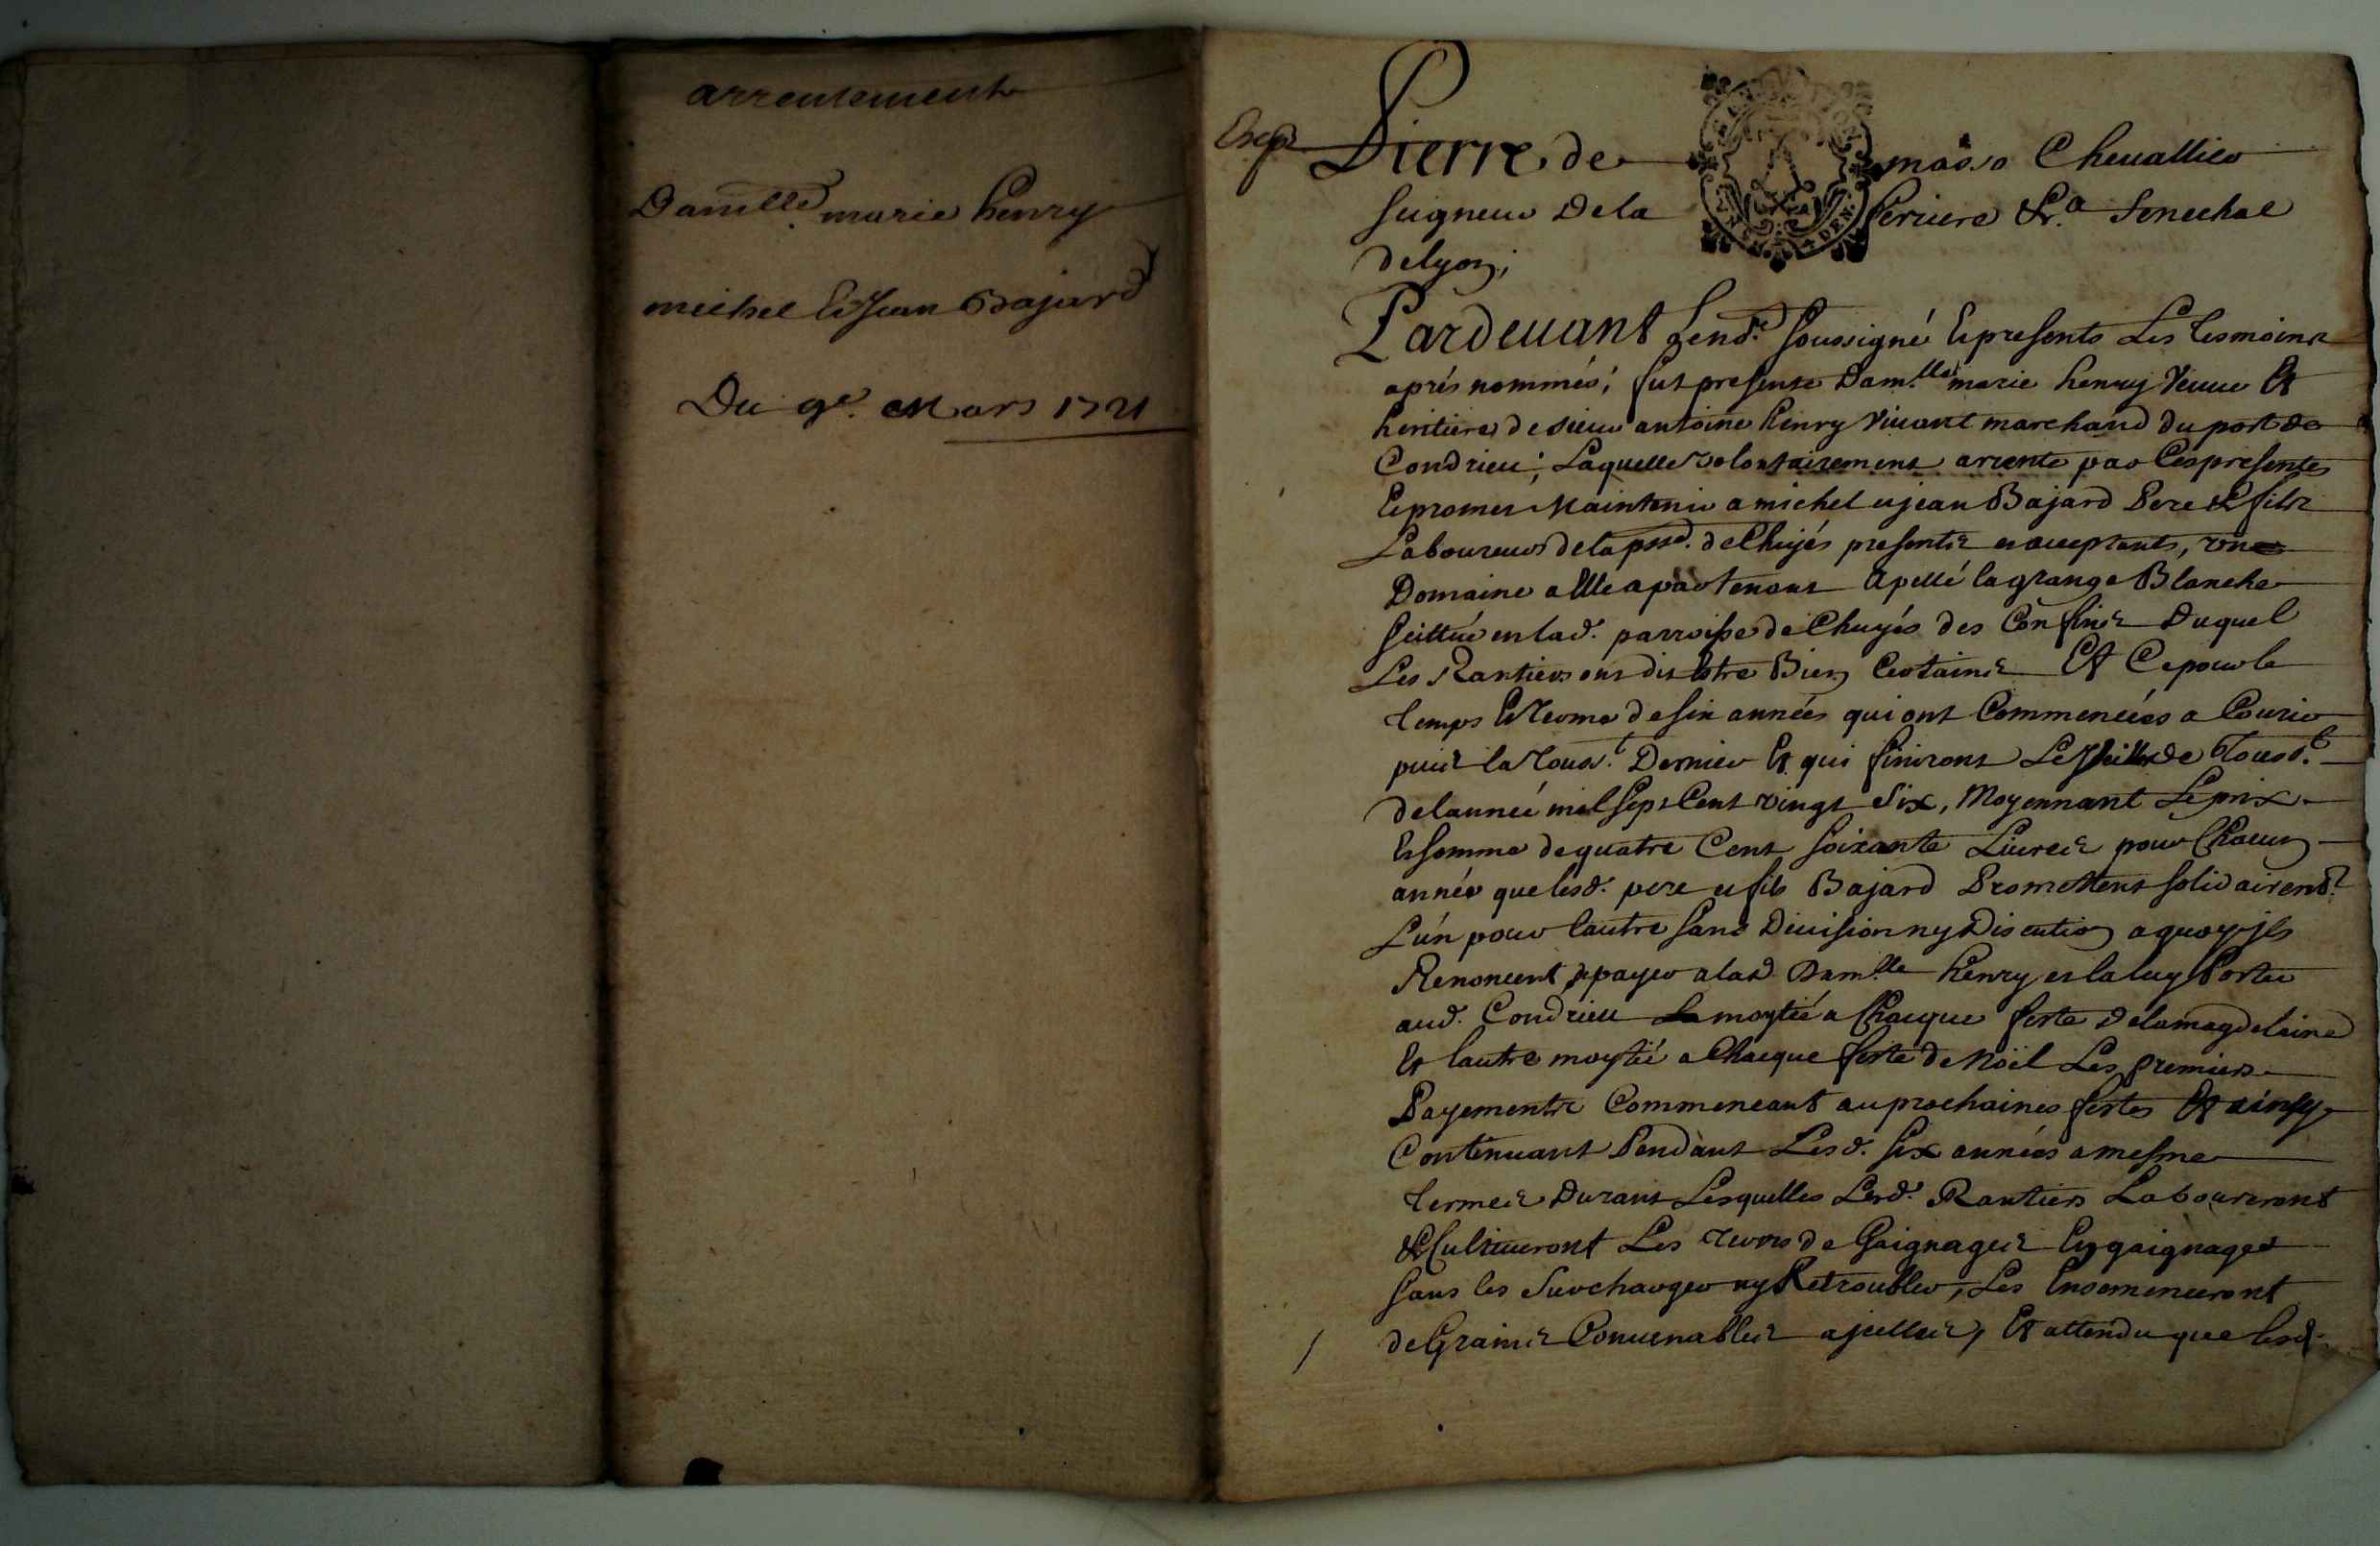 arrentement
Damlle marie henry
michel Et Jean Bajard
Du 9e. Mars 1721
Exp
Pierre de masso Cheuallier
seigneur Dela feriere &.a senechal
delyon,
Pardeuant Lend.re soussigné Et presents Les tesmoins
aprés nommés; fut presente Dam.lle marie henry Veuue Et
heritiere de sieur antoine henry Viuant marchand du port de
Condrieu; Laquelle volontairement arrente par Cespresentes
Et promet Maintenir a michel et jean Bajard Pere & fils
Laboureurs dela psse. de Chuyés presents et acceptants, vn
Domaine a Elle apartenant apellé la grange Blanche
scittué en lad. parroisse de Chuyés des Confins Duquel
Les Rantiers ont dit Estre Bien Certains Et Ce pour le
temps Et Terme de six années qui ont Commencées a Courir
puis la Touss.t Dernier Et qui finiront Le Veille de Touss.t
delanneé mil sept Cent vingt six, Moyennant Le prix
Et somme de quatre Cent soixante Liures pour Chacun
année que lesd. pere et fils Bajard Promettent solidairem.t
L'un pour lautre sans Diuision ny Discution a quoy jls
Renoncent, de payer a lad. Dam.lle henry et la luy Porter
aud. Condrieu La moytié a Chacque feste Delamagdelaine
Et lautre moytié a Chacque feste de Noël Les premiers
Payements Commencant au prochaines festes Et ainsy
Continuant Pendant Lesd. six années a mesme
termes Durant Lesquelles Lesd. Rantiers Laboureront
& Cultiueront Les Terres de Gaignages En gaignages
sans les Surcharger ny Retroubler, Les Ensemenceront
de Grains Conuenables a jcelles, Et attendu que lesd.